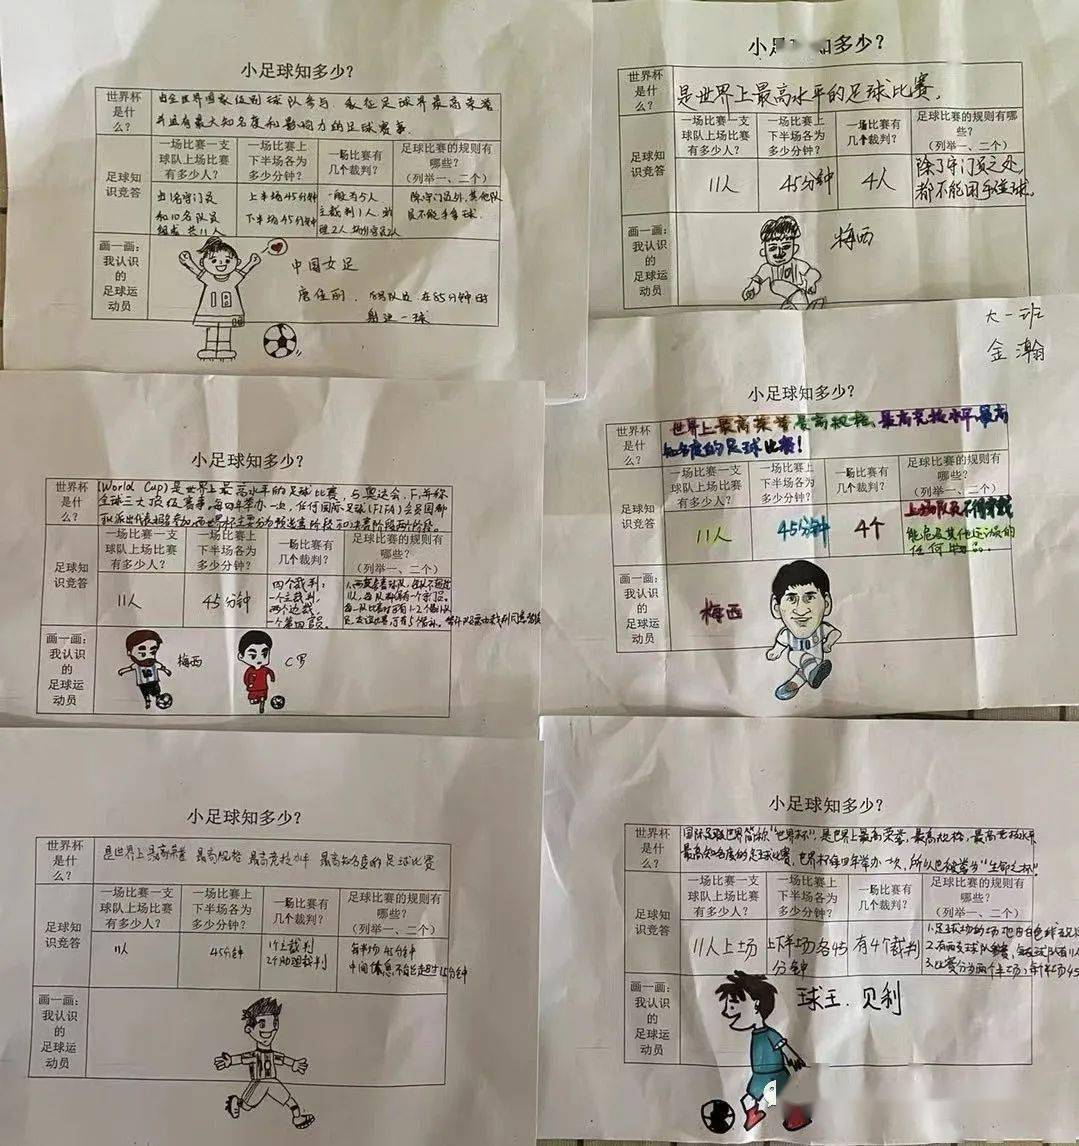 小足球知多少？
世界杯
是什
么？
由全世界国家级别球队参与，象征足球界最高荣誉
并具有最大知名度和影响力的足球赛事。
足球知
识竞答
一场比赛一支
球队上场比赛
有多少人？
一场比赛上
下半场各为
多少分钟？
一场比赛有
几个裁判？
足球比赛的规则有
哪些？
（列举一、二个）
由1名守门员
和10名队员
组成 共11人
上半场45分钟
下半场45分钟
一般为5人
主裁判1人
除守门员外，其他队
员不能手拿球
画一画：
我认识
的
足球运
动员
18
中国女足
唐佳丽
在85分钟时
射进一球
小足球知多少？
世界杯
是什
么？
是世界上最高水平的足球比赛。
足球知
识竞答
一场比赛一支
球队上场比赛
有多少人？
一场比赛上
下半场各为
多少分钟？
一场比赛有
几个裁判？
足球比赛的规则有哪
些？
（列举一、二个）
11人
45分钟
4人
除了守门员之处，
都不能用手碰球。
画一画：
我认识
的
足球运
动员
10
梅西
小足球知多少？
世界杯
是什
么？
(World Cup)是世界上最高水平的足球比赛，与奥运会、F1并称
全球三大顶级赛事。每四年举办一次，任何国际足联(FIFA)会员国都
可以派出代表队报名参加，而世界杯主要分为预选赛阶段和决赛阶段两个阶段。
足球知
识竞答
一场比赛一支
球队上场比赛
有多少人？
一场比赛上
下半场各为
多少分钟？
一场比赛有
几个裁判？
足球比赛的规则有
哪些？
（列举一、二个）
11人
45分钟
四个裁判：
一个主裁判，
两个边裁，
一个第四官员。
画一画：
我认识
的
足球运
动员
梅西
C罗
大一班
金瀚
小足球知多少？
世界杯
是什
么？
世界上最高荣誉、最高规格、最高竞技水平、最高
知名度的足球比赛！
足球知
识竞答
一场比赛一支
球队上场比赛
有多少人？
一场比赛上
下半场各为
多少分钟？
一场比赛有
几个裁判？
足球比赛的规则有
哪些？
（列举一、二个）
11人
45分钟
4个
上场队员不得穿戴
能危及其他运动员的
任何物品。
画一画：
我认识
的
足球运
动员
梅西
10
小足球知多少？
世界杯
是什
么？
是世界上最高荣誉 最高规格 最高竞技水平 最高知名度的足球比赛
足球知
识竞答
一场比赛一支
球队上场比赛
有多少人？
一场比赛上
下半场各为
多少分钟？
一场比赛有
几个裁判？
足球比赛的规则有
哪些？
（列举一、二个）
11人
45分钟
1个主裁判
2个助理裁判
每半场45分钟
中间休息不能超过15分钟
画一画：
我认识
的
足球运
动员
小足球知多少？
世界杯
是什
么？
简称“世界杯”，是世界上最高荣誉，最高规格，最高竞技水平
最高知名度的足球比赛，世界杯每四年举办一次，所以也被誉为“生命之杯”
足球知
识竞答
一场比赛一支
球队上场比赛
有多少人？
一场比赛上
下半场各为
多少分钟？
一场比赛有
几个裁判？
足球比赛的规则有
哪些？
（列举一、二个）
11人上场
上下半场各45
分钟
有4个裁判
3.比赛分为两个半场，每半场45
画一画：
我认识
的
足球运
动员
球王.贝利